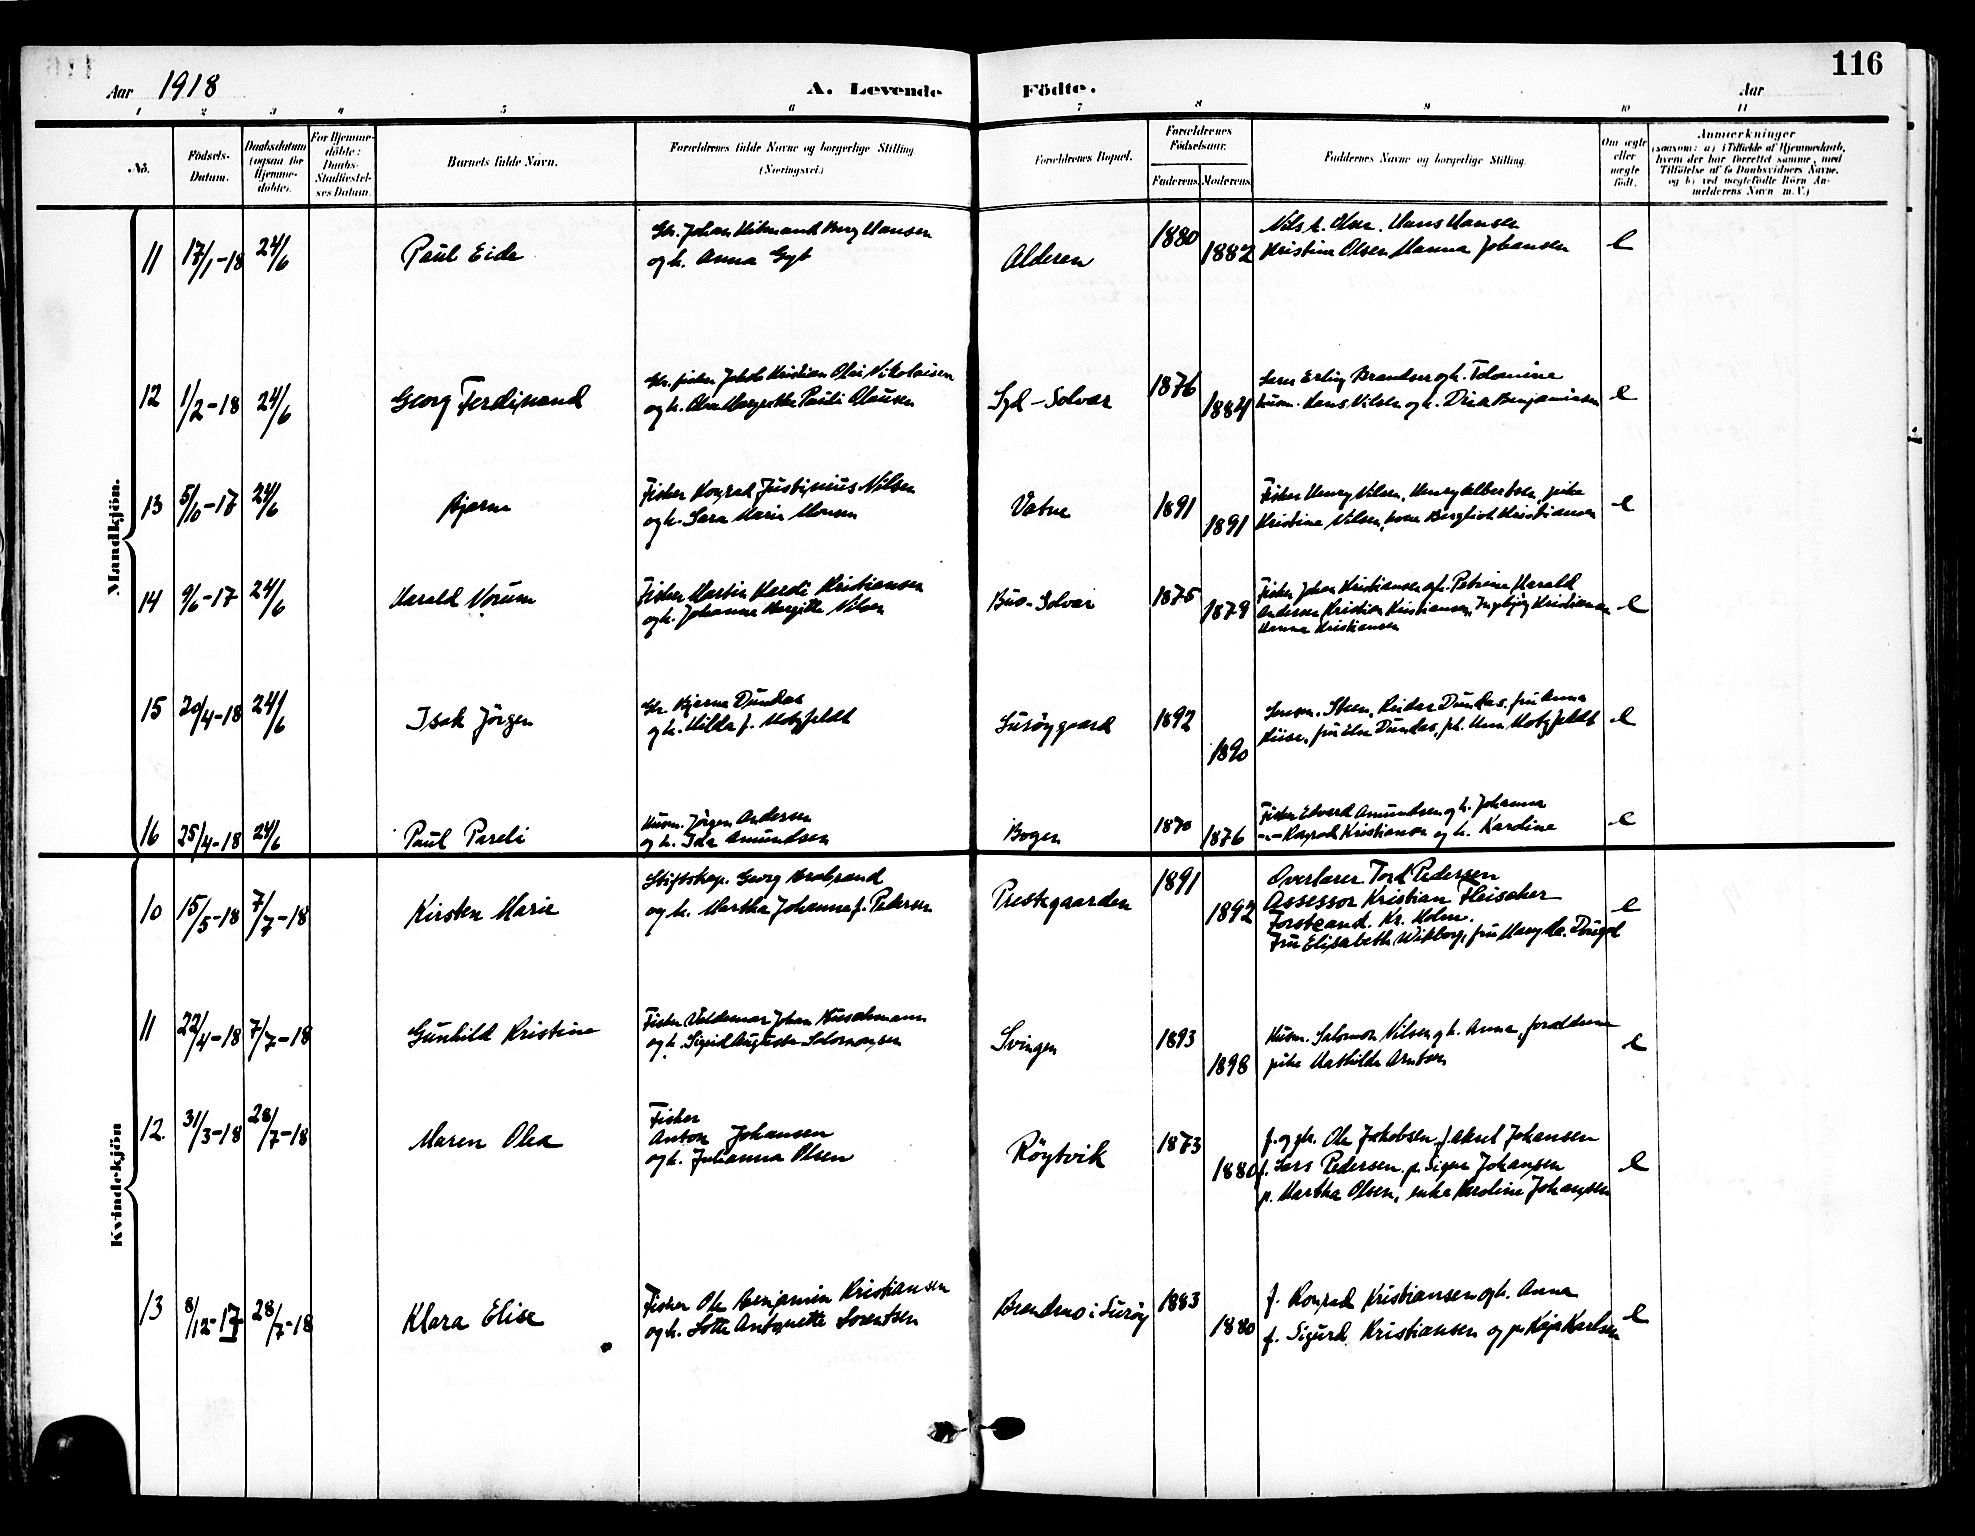 116
Aar 1918 A. Levende Födte. Aar
1 2 3 4 5 6 7 8 9 10 11
No. Födsels-Datum. Daabsdatum (ogsaa for Hjemmedöbte). For Hjemmedöbte: Daabs-Stadfæstelses Datum. Barnets fulde Navn. Forældrenes fulde Navne og borgerlige Stilling (Næringsvei.) Forældrenes Bopæl. Forældrenes Födselsaar. Faderens Moderens Faddernes Navne og borgerlige Stilling. Om ægte eller uægte født. Anmærkninger (saasom: a) i Tilfælde af Hjemmedaab, hvem der har forrettet samme, med Tilføielse af to Daabsvidners Navne, og b) ved uægtefødte Börn Anmelderens Navn m. V.)
Mandkjön.
11 17/1-18 24/6 Paul Eide Johan Hilmand Berg Hansen
og h. Anna Alderen 1880 1882 Nils A. Olsen, Hans Hansen
Kristine Olsen Hanna Johansen e
12 1/2-18 24/6 Georg Ferdinand Gbr. fisker Jakob Kristian Olai Nikolaisen
og h. Margrethe Pauli Clausen Syd-Solvær 1876 1884 Erling Brandser og h. Tolamine
husm. Hans Nilsen og h. Benjaminsen e
13 5/10-17 24/6 Bjarne Fisker Konrad Justinius Nilsen
og h. Sara Marie Monsen Vatne 1891 1891 Fisker Henry Nilsen, Henry Albertsen, pike
Kristine Nilsen, Bergliot Kristiansen e
14 9/6-17 24/6 Harald Norum Fisker Martin Hardi Kristiansen
og h. Johanna Bergitte Nilsen Buo-Solvær 1875 1879 Fisker Johan Kristiansen og h. Petrine Harald
Andersen Kristian Kristiansen, Ingebjørg Kristiansen
Hanna Kristiansen e
15 20/4-18 24/6 Isak Jörgen Bjarne Dundas
og h. Hilda f. Motzfeldt Luröygaard 1892 1890 Steen, Reidar Dundas, fru Anna
fru Else Dundas, Motzfeldt e
16 25/4-18 24/6 Paul Pareli Husm. Jörgen Andersen
og h. Ida Amundsen Bogen 1870 1876 Fisker Edvard Amundsen og h. Johanna
-"- Konrad Kristiansen og h. Kardine e
Kvindekjön
10 15/5-18 7/7-18 Kirsten Marie Stiftskap. Georg Brabrand
og h. Martha Johanna f. Pedersen Prestegaarden 1891 1892 Overlærer Tord Pedersen
Assessor Kristian Fleischer
Forstkand. Kr. Holm.
Fru Elisabeth Wikborg, fru e
11 22/4-18 7/7-18 Gunhild Kristine Fisker Valdemar Johan Buschmann
og h. Sigrid Augusta Salomonsen Svingen 1893 1898 Husm. Salomon Nilsen og h. Anna, forældrene
pike Mathilde Arntsen e
12. 31/3-18 28/7-18 Maren Olea Fisker
Anton Johansen
og h. Julianna Olsen Röytvik 1873 1880 f. og gbr. Ole Jakobsen, f. Aksel Johansen
f. Lars Pedersen, p. Signe Johansen
p. Martha Olsen, enke Karoline Johansen e
13 8/12-17 28/7-18 Klara Elise Fisker Ole Benjamin Kristiansen
og h. Lotte Antonette Lorentsen Brendmo i Luröy 1883 1880 f. Konrad Kristiansen og h. Anna
f. Sigurd Kristiansen og p. Kaja Karlsen e